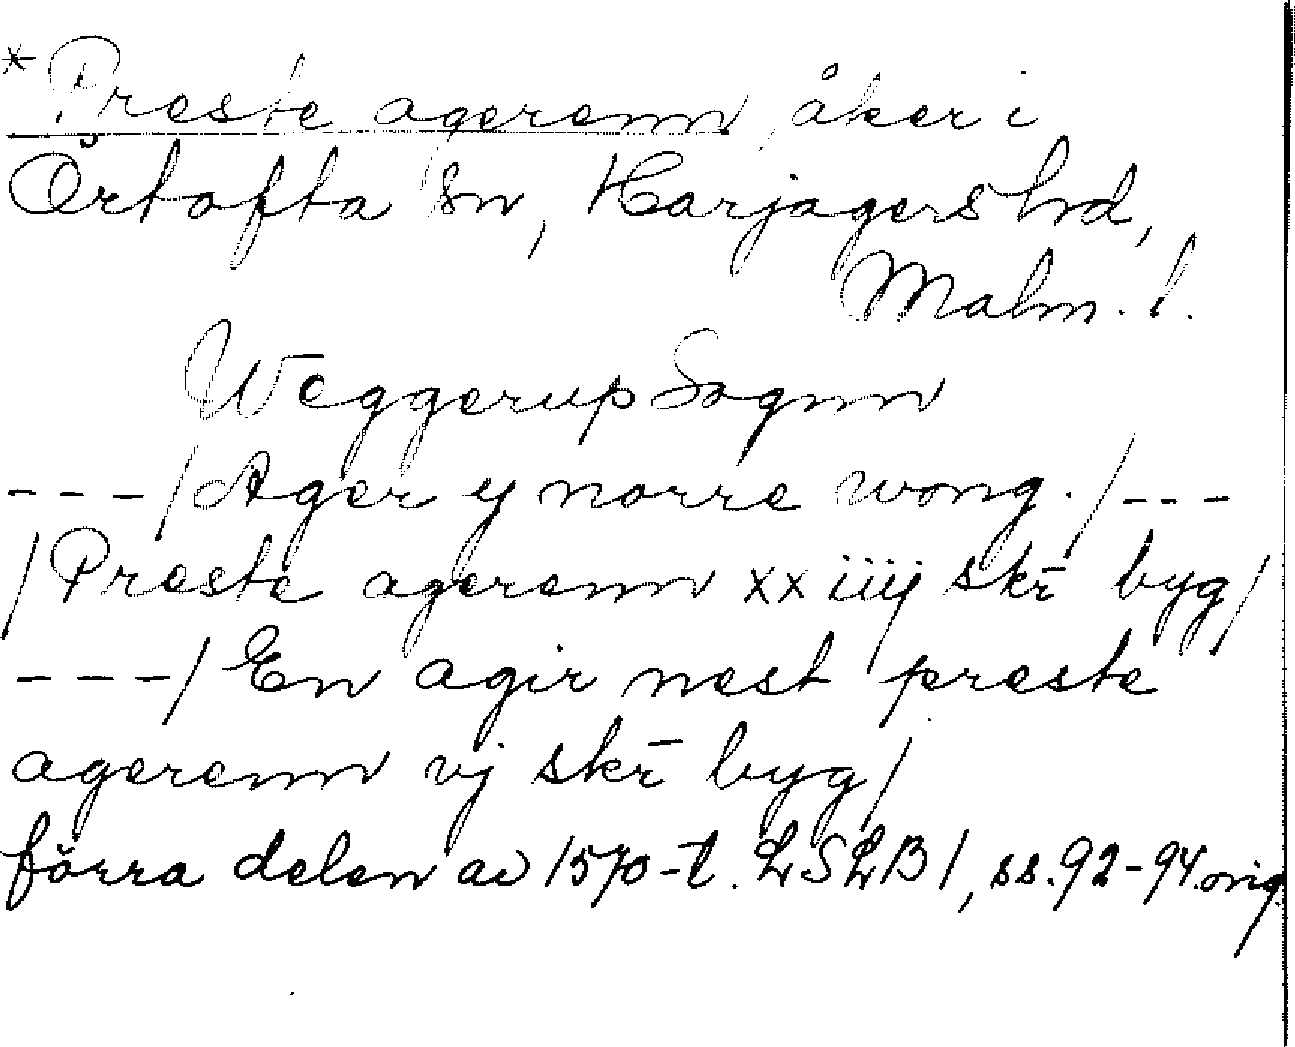 * Preste agerenn, åker i
Örtofta sn, Harjagers hd,
Malm. l.
Weggerup Sognn
---/Ager y norre wong./---
/Preste agerenn xx iiij skr̄ byg/
---/En agir nest preste
agerenn vj skr̄ byg/
förra delen av 1570-t. LSLB 1, ss. 92-94. orig.